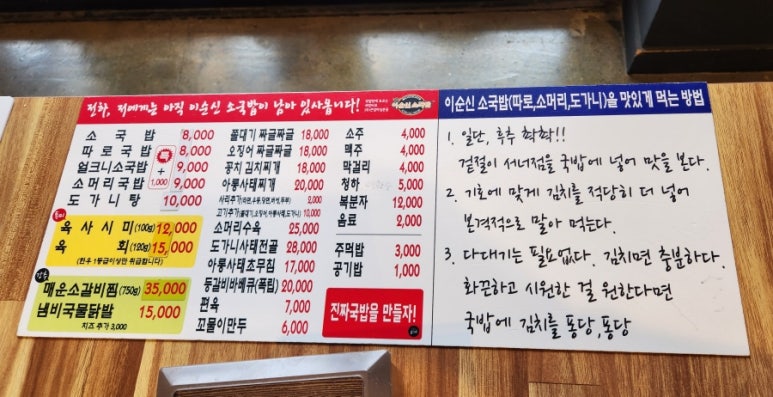 전하, 저에게는 아직 이순신 소국밥이 남아 있사옵니다!
이순신 소국밥
소국밥 8,000
따로국밥 8,000
얼크니소국밥 9,000
소머리국밥 9,000
도가니탕 10,000
특
+
1,000
육사시미 (100g) 12,000
육회 (120g) 15,000
(한우 1등급이상만 취급합니다)
매운소갈비찜 (750g) 35,000
냄비국물닭발 15,000
치즈 추가 3,000
물대기 짜글짜글 18,000
오징어 짜글짜글 18,000
꽁치 김치찌개 18,000
아롱사태찌개 20,000
2,000
10,000
소머리수육 25,000
도가니사태전골 28,000
아롱사태초무침 17,000
등갈비바베큐(폭립) 20,000
편육 7,000
꼬물이만두 6,000
소주 4,000
맥주 4,000
막걸리 4,000
청하 5,000
복분자 12,000
음료 2,000
주먹밥 3,000
공기밥 1,000
진짜국밥을 만들자!
이순신 소국밥(따로,소머리,도가니)을 맛있게 먹는 방법
1. 일단, 후추 학학!!
겉절이 서너점을 국밥에 넣어 맛을 본다.
2. 기호에 맞게 김치를 적당히 더 넣어
본격적으로 말아 먹는다.
3. 다대기는 필요없다. 김치면 충분하다.
화끈하고 시원한 걸 원한다면
국밥에 김치를 퐁당, 퐁당